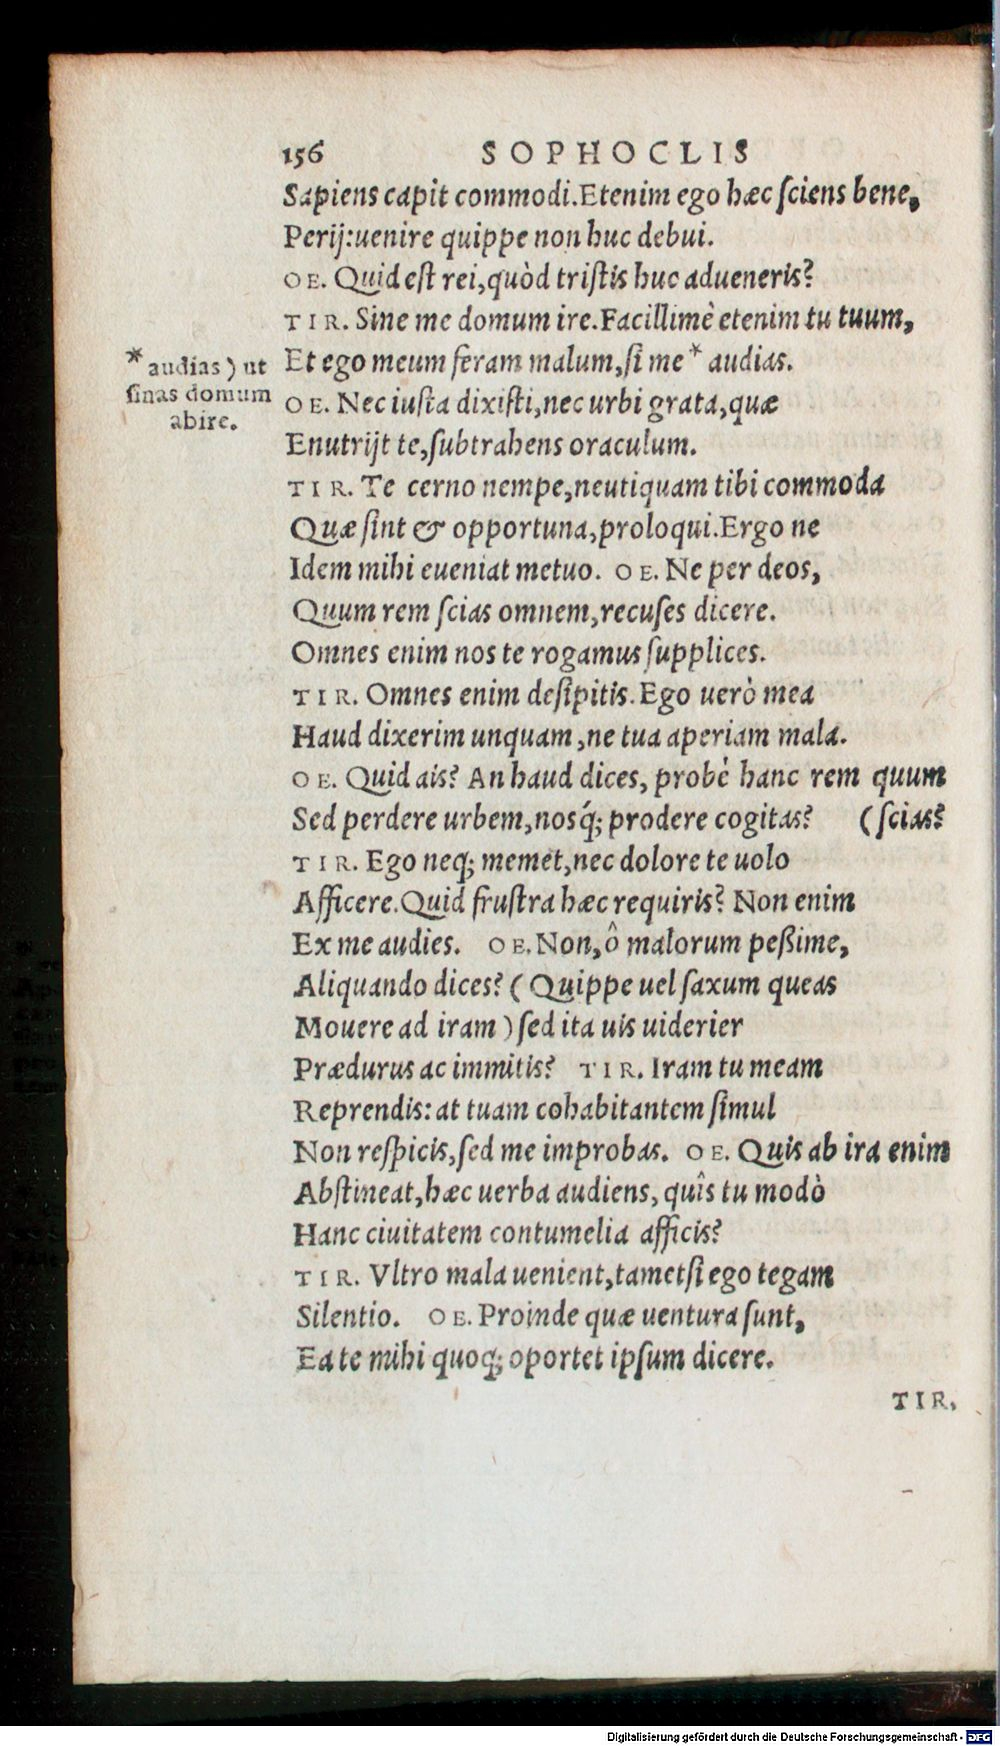 156 SOPHOCLIS
Sapiens capit commodi. Etenim ego hæc ſciens bene,
Perij: uenire quippe non huc debui.
OE. Quid eſt rei, quòd triſtis huc adueneris?
TIR. Sine me domum ire. Facillimè etenim tu tuum,
Et ego meum feram malum, ſi me * audias.
* audias) ut
ſinas domum
abire.
OE. Nec iuſta dixiſti, nec urbi grata, quæ
Enutrijt te, ſubtrahens oraculum.
TIR. Te cerno nempe, neutiquam tibi commoda
Quæ ſint & opportuna, proloqui. Ergo ne
Idem mihi eueniat metuo. OE. Ne per deos,
Quum rem ſcias omnem, recuſes dicere.
Omnes enim nos te rogamus ſupplices.
TIR. Omnes enim deſipitis. Ego uerò mea
Haud dixerim unquam, ne tua aperiam mala.
OE. Quid ais? An haud dices, probè hanc rem quum
Sed perdere urbem, nosq́; prodere cogitas? (ſcias?
TIR. Ego neq; memet, nec dolore te uolo
Afficere. Quid fruſtra hæc requiris? Non enim
Ex me audies. OE. Non, ô malorum peßime,
Aliquando dices? (Quippe uel ſaxum queas
Mouere ad iram) ſed ita uis uiderier
Prædurus ac immitis? TIR. Iram tu meam
Reprendis: at tuam cohabitantem ſimul
Non reſpicis, ſed me improbas. OE. Quis ab ira enim
Abſtineat, hæc uerba audiens, quîs tu modò
Hanc ciuitatem contumelia afficis?
TIR. Vltro mala uenient, tametſi ego tegam
Silentio. OE. Proinde quæ uentura ſunt,
Ea te mihi quoq; oportet ipſum dicere.
TIR.
Digitalisierung gefördert durch die Deutsche Forschungsgemeinschaft - DFG